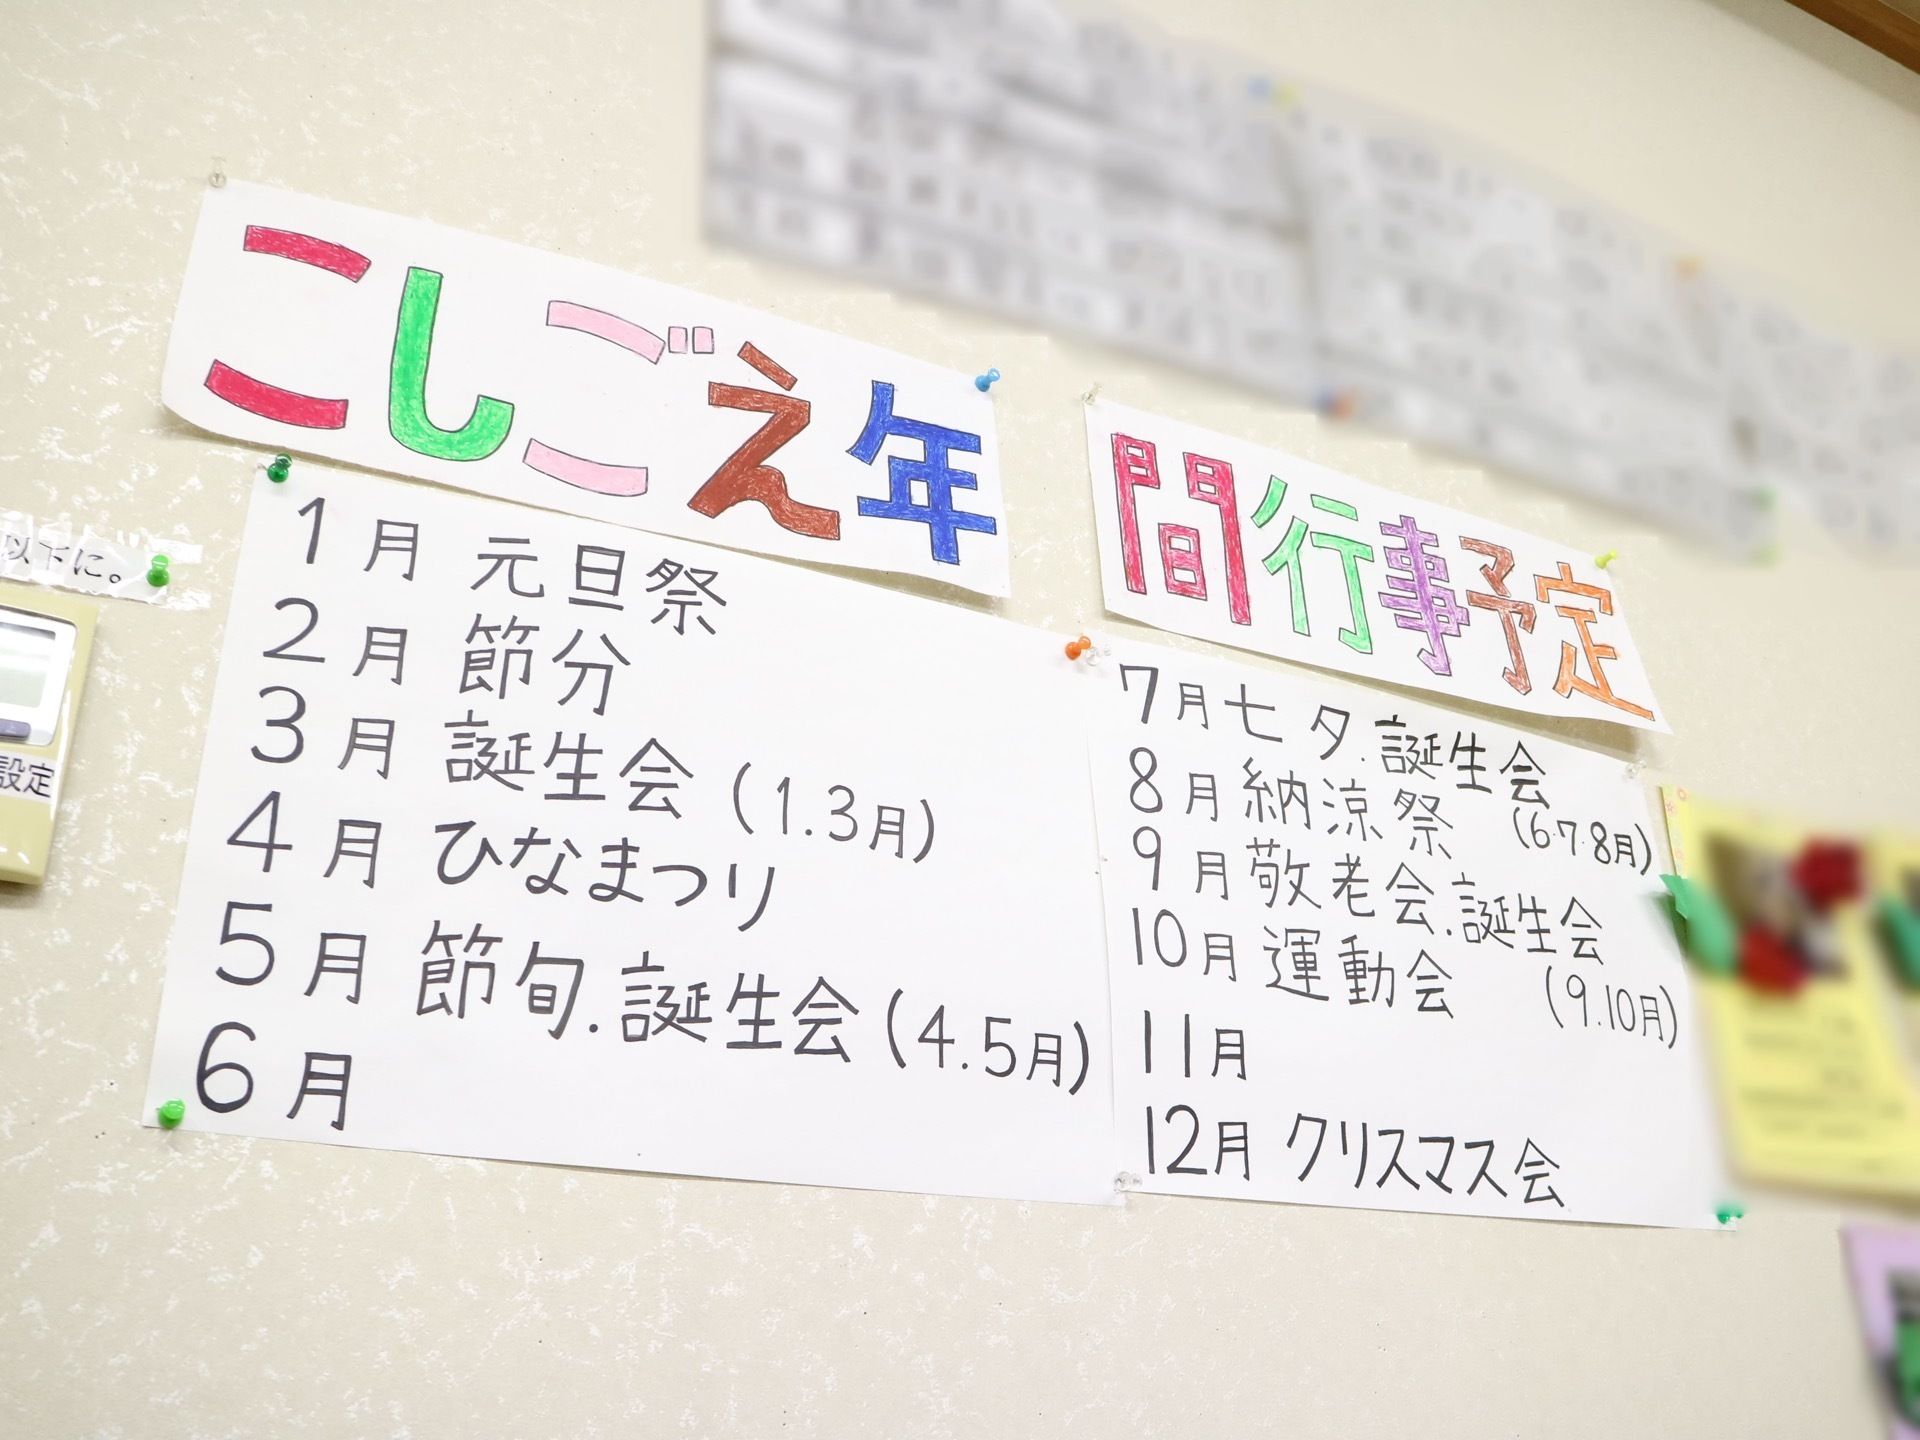 こしごえ年
間行事予定
1月 元旦祭
2月 節分
3月 誕生会(1.3月)
4月 ひなまつり
5月 節旬.誕生会(4.5月)
6月
7月 七夕.誕生会
(6.7.8月)
8月 納涼祭
9月 敬老会.誕生会
(9.10月)
10月 運動会
11月
12月 クリスマス会
以下に。
設定